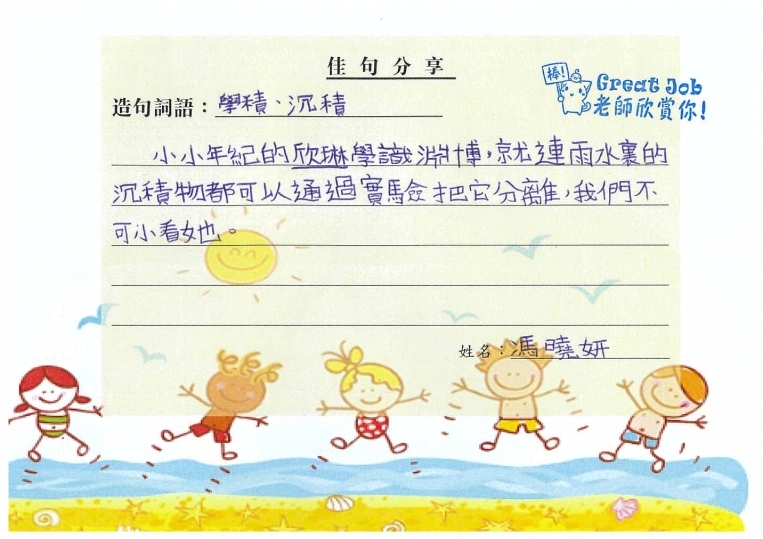 佳句分享
棒!
Great Job
老師欣賞你!
造句詞語：學積、沉積
小小年紀的欣琳學識淵博，就連雨水裏的
沉積物都可以通過實驗把它分離，我們不
可小看她。
姓名：馮曉妍